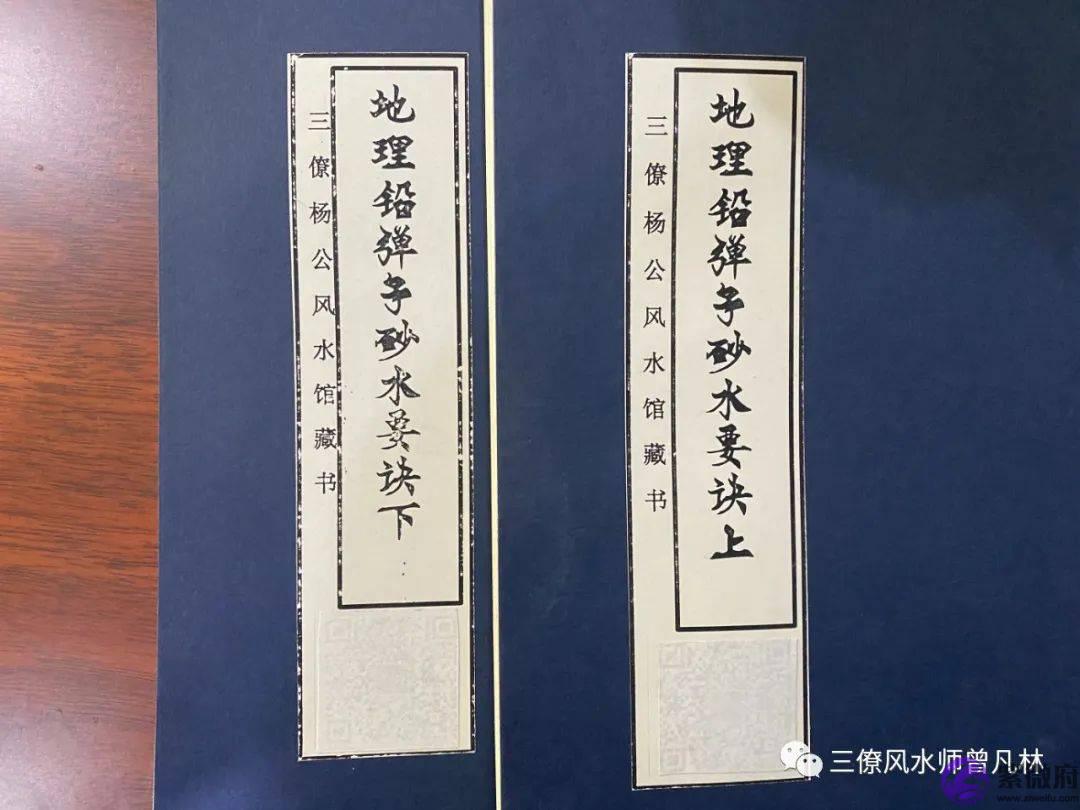 地理铅弹子砂水要诀上
三僚杨公风水馆藏书
地理铅弹子砂水要诀下
三僚杨公风水馆藏书
三僚风水师曾凡林
紫微府
www.ziweifu.com